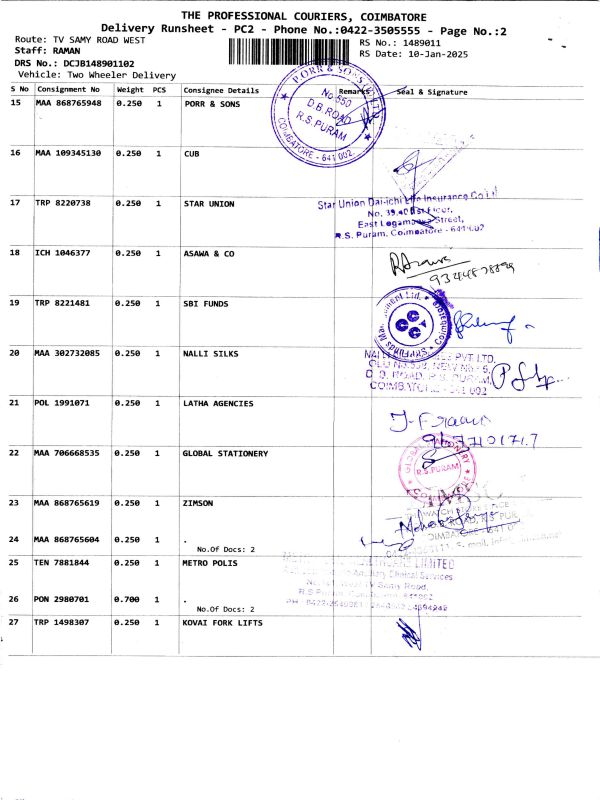 THE PROFESSIONAL COURIERS, COIMBATORE
Delivery Runsheet - PC2 - Phone No.:0422-3505555 - Page No.:2
Route: TV SAMY ROAD WEST RS No.: 1489011
Staff: RAMAN RS Date: 10-Jan-2025
DRS No.: DCJB148901102
Vehicle: Two Wheeler Delivery
S No Consignment No Weight PCS Consignee Details Remarks Seal & Signature
15 MAA 868765948 0.250 1 PORR & SONS
PORR & SONS
No 550
D.B. ROAD
R.S.PURAM
COIMBATORE - 641 002.
16 MAA 109345130 0.250 1 CUB
17 TRP 8220738 0.250 1 STAR UNION
Star Union Dai-ichi Life Insurance Co Ltd
East Logamanya Street,
R.S. Puram, Coimbatore - 641 002
18 ICH 1046377 0.250 1 ASAWA & CO
19 TRP 8221481 0.250 1 SBI FUNDS
20 MAA 302732085 0.250 1 NALLI SILKS
PVT LTD.
D.B. ROAD, R.S. PURAM,
COIMBATORE - 641 002
21 POL 1991071 0.250 1 LATHA AGENCIES
22 MAA 706668535 0.250 1 GLOBAL STATIONERY
GLOBAL STATIONERY
R.S.PURAM
23 MAA 868765619 0.250 1 ZIMSON
24 MAA 868765604 0.250 1 .
No.Of Docs: 2
25 TEN 7881844 0.250 1 METRO POLIS
LIMITED
Clinical Services
Samy Road,
26 PON 2980701 0.700 1 .
No.Of Docs: 2
27 TRP 1498307 0.250 1 KOVAI FORK LIFTS